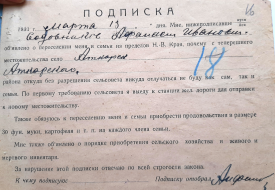 ПОДПИСКА
1931 марта 13 дня. Мне, нижеподписавш
объявлено о переселении меня и семьи из пределов Н.В. Края, почему с теперешнего
местожительства село Аткарск
Аткарского
района отнюдь без разрешения сельсовета никуда отлучаться не буду как сам, так и
семья. По первому требованию сельсовета я выеду к станции жел. дороги для отправки
к новому местожительству.
Также обязуюсь к переселению меня и семьи приобрести продовольствия в размере
30 фун. муки, картофеля и т. п. на каждого члена семьи.
Мне также объявлено о порядке приобретения сельского хозяйства и живого и
мертвого инвентаря.
За нарушение этой подписки отвечаю по всей строгости закона.
К чему подписуюсь Подписку отобрал
18